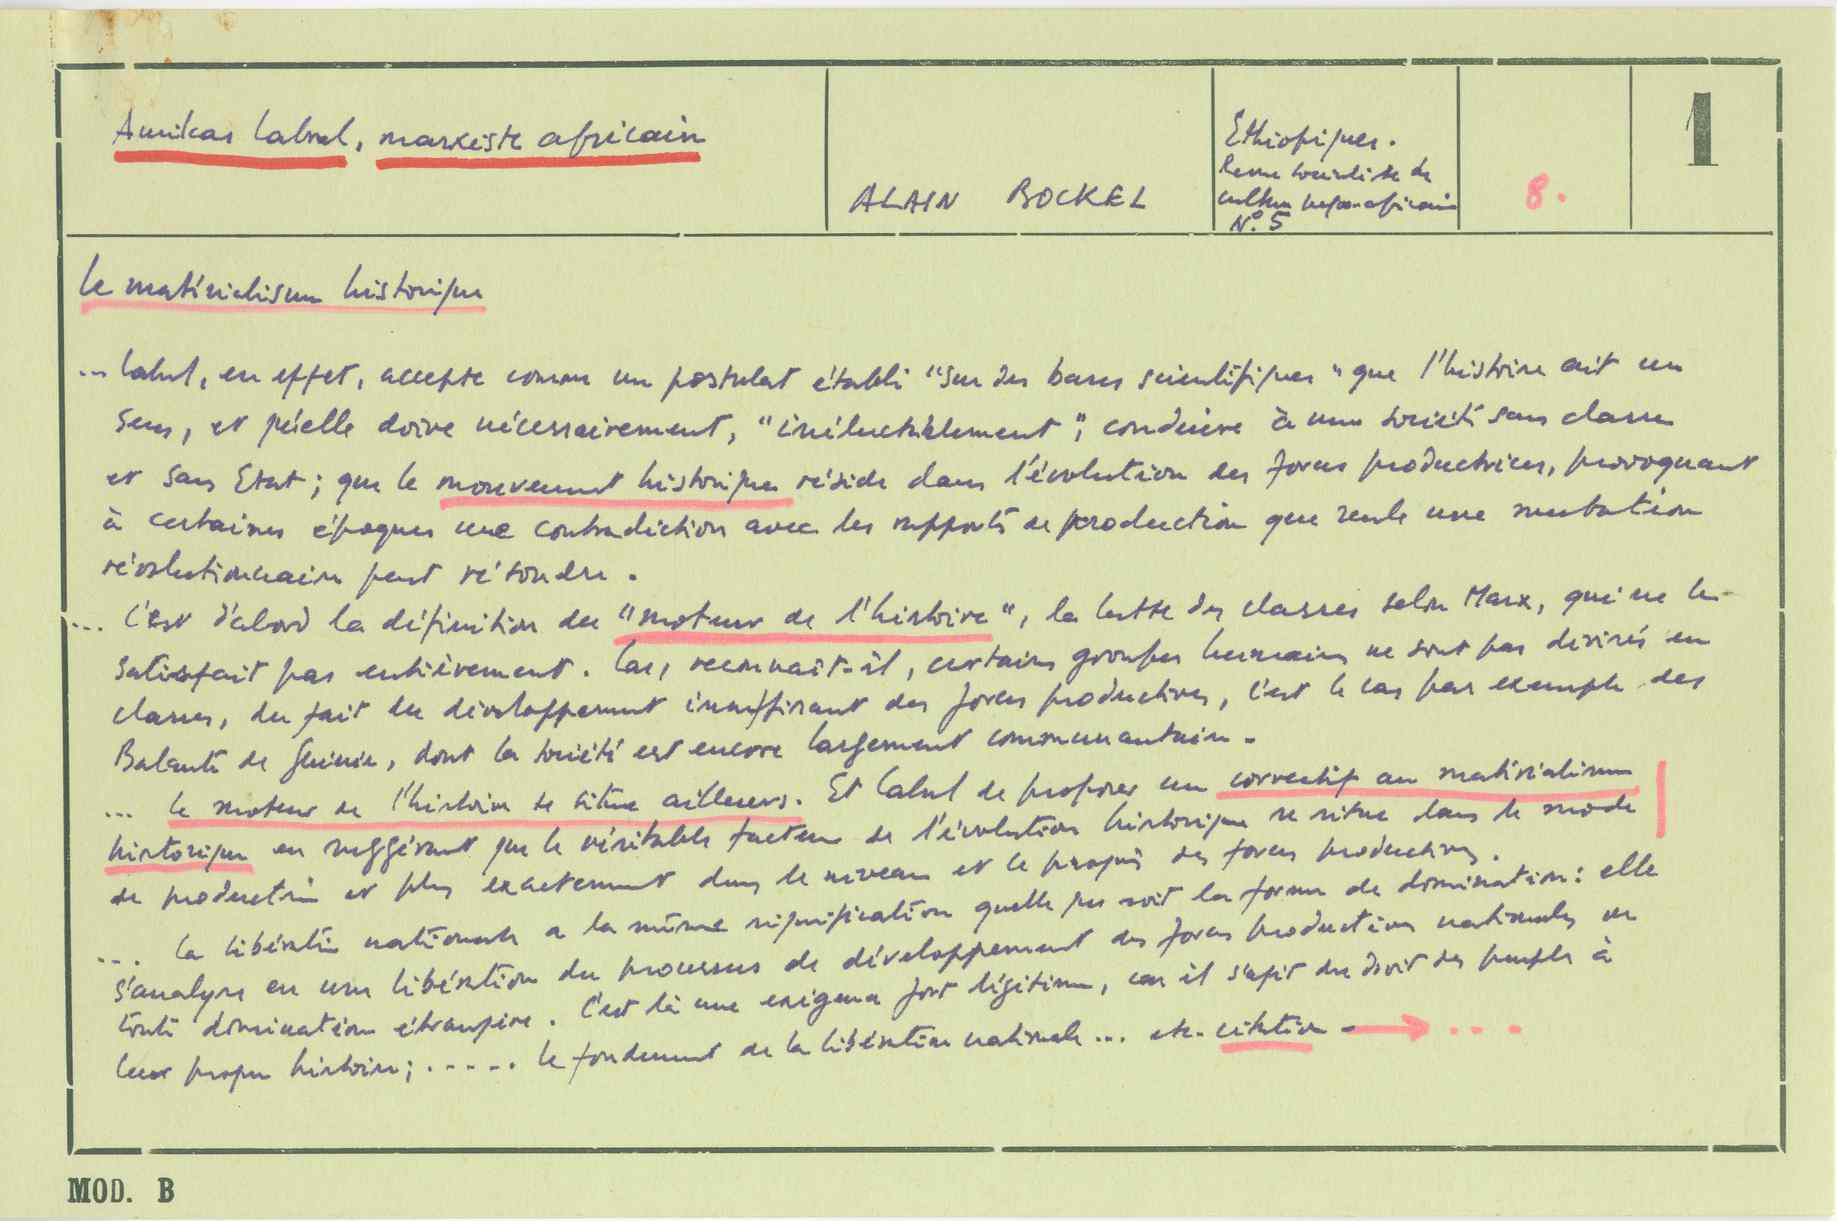 Amilcar Cabral, marxiste africain
ALAIN BOCKEL
Ethiopiques.
Revue socialiste de
culture negro-africaine
N.º 5
8.
1
Le matérialisme historique
... Cabral, en effet, accepte comme un postulat établi "sur des bases scientifiques" que l'histoire ait un
sens, et qu'elle doive nécessairement, "inéluctablement", conduire à une société sans classes
et sans Etat; que le mouvement historique réside dans l'évolution des forces productrices, provoquant
à certaines époques une contradiction avec les rapports de production que seule une mutation
révolutionnaire peut résoudre.
... C'est d'abord la définition du "moteur de l'histoire", la lutte des classes selon Marx, qui ne le
satisfait pas entièrement. Car, reconnait-il, certains groupes humains ne sont pas divisés en
classes, du fait du développement insuffisant des forces productives, c'est le cas par exemple des
Balante de Guinée, dont la société est encore largement communautaire.
... Le moteur de l'histoire se situe ailleurs. Et Cabral de proposer un correctif au matérialisme
historique en suggérant que le véritable facteur de l'évolution historique se situe dans le mode
de production et plus exactement dans le niveau et le progrès des forces productives.
... La libération nationale a la même signification quelle que soit la forme de domination: elle
s'analyse en une libération du processus de développement des forces productives nationales de
toute domination étrangère. C'est là une exigence fort légitime, car il s'agit du droit des peuples à
leur propre histoire; ..... le fondement de la libération nationale ... etc. citation → ...
MOD. B